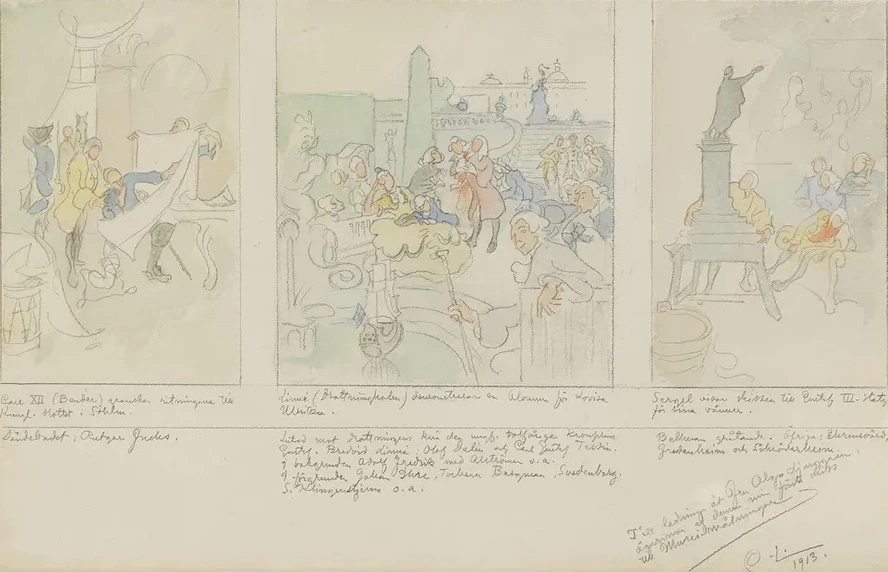 Carl XII (Bender) granskar ritningarna till
Kungl. slottet i Sthlm.
Sändebudet: Rutger Judes.
Linné (Drottningholm) demonstrerar en Aloeum för Lovisa
Ulrika.
Lutad mot drottningens knä den unge Kronprins
Gustaf. Bredvid Linné: Olof Dalin och Carl Gustaf Tessin.
I bakgrunden Adolf Fredrik med Alströmer o.a.
I förgrunden Johan Ihre, Torbern Bergman, Svedenborg.
S. Klingenstjerna o.a.
Sergel visar skissen till Gustaf III-Staty
för sina vänner.
Bellman gråtande. Öfriga: Ehrensvärd,
Gredenheim och Schröderheim.
Till ledning åt Fru
ägarinna af denna min första skiss
till Museimålningar
O. L. 1913.